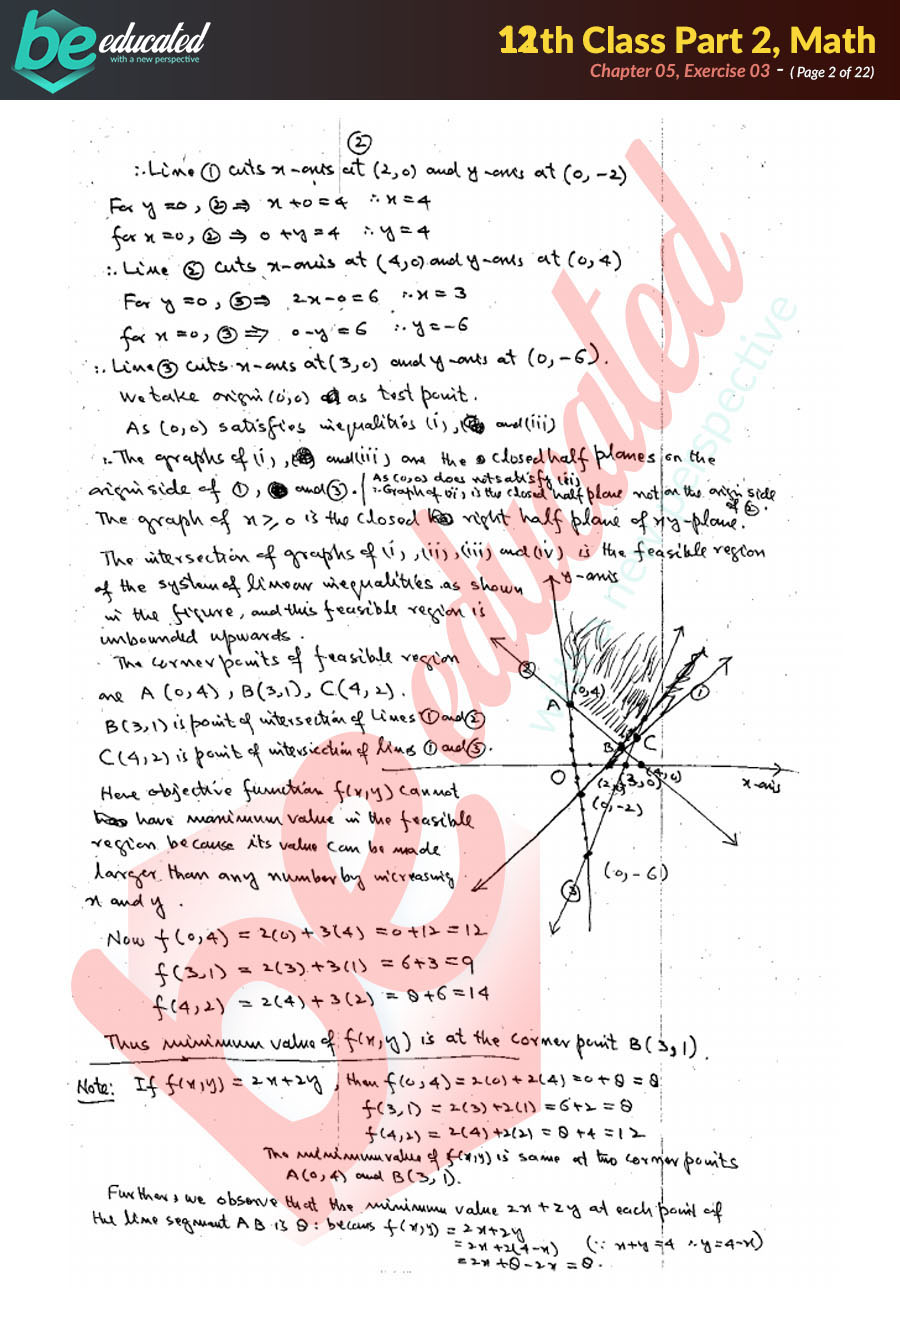 be educated
with a new perspective
12th Class Part 2, Math
Chapter 05, Exercise 03 - ( Page 2 of 22)
②
∴ Line ① cuts x-axis at (2,0) and y-axis at (0,-2)
For y=0, ② ⇒ x+0=4 ∴ x=4
for x=0, ② ⇒ 0+y=4 ∴ y=4
∴ Line ② cuts x-axis at (4,0) and y-axis at (0,4)
For y=0, ③ ⇒ 2x-0=6 ∴ x=3
for x=0, ③ ⇒ 0-y=6 ∴ y=-6
∴ Line ③ cuts x-axis at (3,0) and y-axis at (0,-6).
We take origin (0,0) as test point.
As (0,0) satisfies inequalities (i), and (iii)
∴ The graphs of (i), and (iii) are the closed half planes on the
origin side of ①, and ③. As (0,0) does not satisfy (ii)
∴ Graph of (ii) is the closed half plane not on the origin side
of ②.
The graph of x ≥ 0 is the closed right half plane of xy-plane.
The intersection of graphs of (i), (ii), (iii) and (iv) is the feasible region
of the system of linear inequalities as shown
in the figure, and this feasible region is
unbounded upwards.
The corner points of feasible region
are A(0,4), B(3,1), C(4,2).
B(3,1) is point of intersection of lines ① and ②
C(4,2) is point of intersection of lines ① and ③.
Here objective function f(x,y) cannot
have maximum value in the feasible
region because its value can be made
larger than any number by increasing
x and y.
y-axis
②
(0,4)
A
①
B
C
O
(3,0)
(4,0)
x-axis
(0,-2)
(0,-6)
③
Now f(0,4) = 2(0)+3(4) = 0+12 = 12
f(3,1) = 2(3)+3(1) = 6+3 = 9
f(4,2) = 2(4)+3(2) = 8+6 = 14
Thus minimum value of f(x,y) is at the corner point B(3,1).
Note: If f(x,y) = 2x+2y, then f(0,4) = 2(0)+2(4) = 0+8 = 8
f(3,1) = 2(3)+2(1) = 6+2 = 8
f(4,2) = 2(4)+2(2) = 8+4 = 12
The minimum value of f(x,y) is same at two corner points
A(0,4) and B(3,1).
Further, we observe that the minimum value 2x+2y at each point of
the line segment AB is 8: becaus f(x,y) = 2x+2y
= 2x+2(4-x) (∵ x+y=4 ∴ y=4-x)
= 2x+8-2x = 8.
be educated
with a new perspective